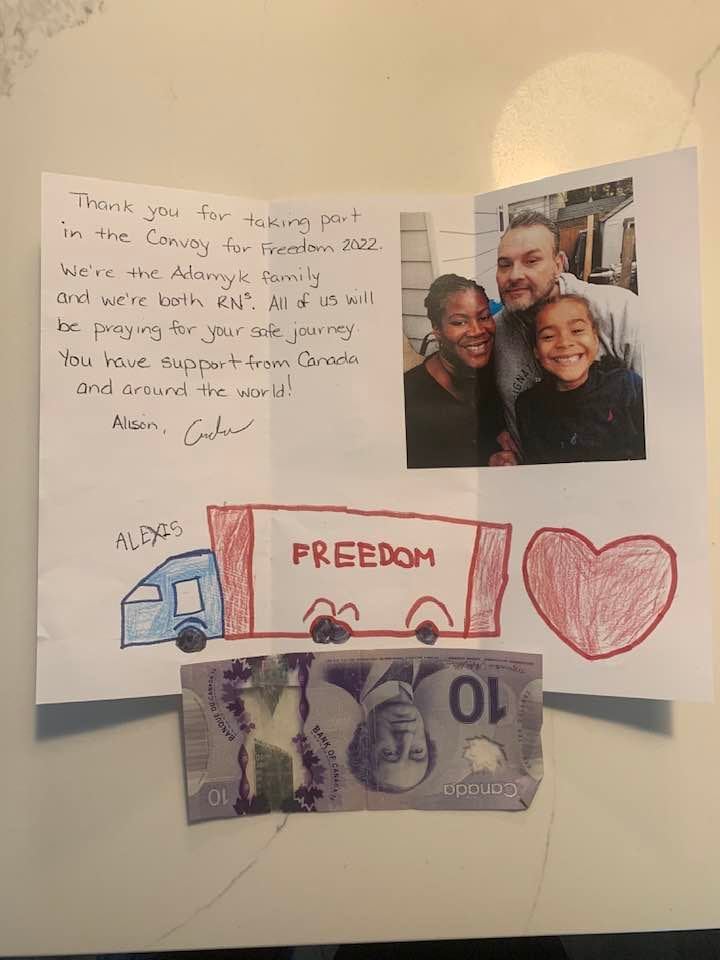 Thank you for taking part
in the Convoy for Freedom 2022.
We're the Adamyk family
and we're both RNs. All of us will
be praying for your safe journey.
You have support from Canada
and around the world!
Alison,
ALEXIS
FREEDOM
10
Canada
BANK OF CANADA
BANQUE DU CANADA
10